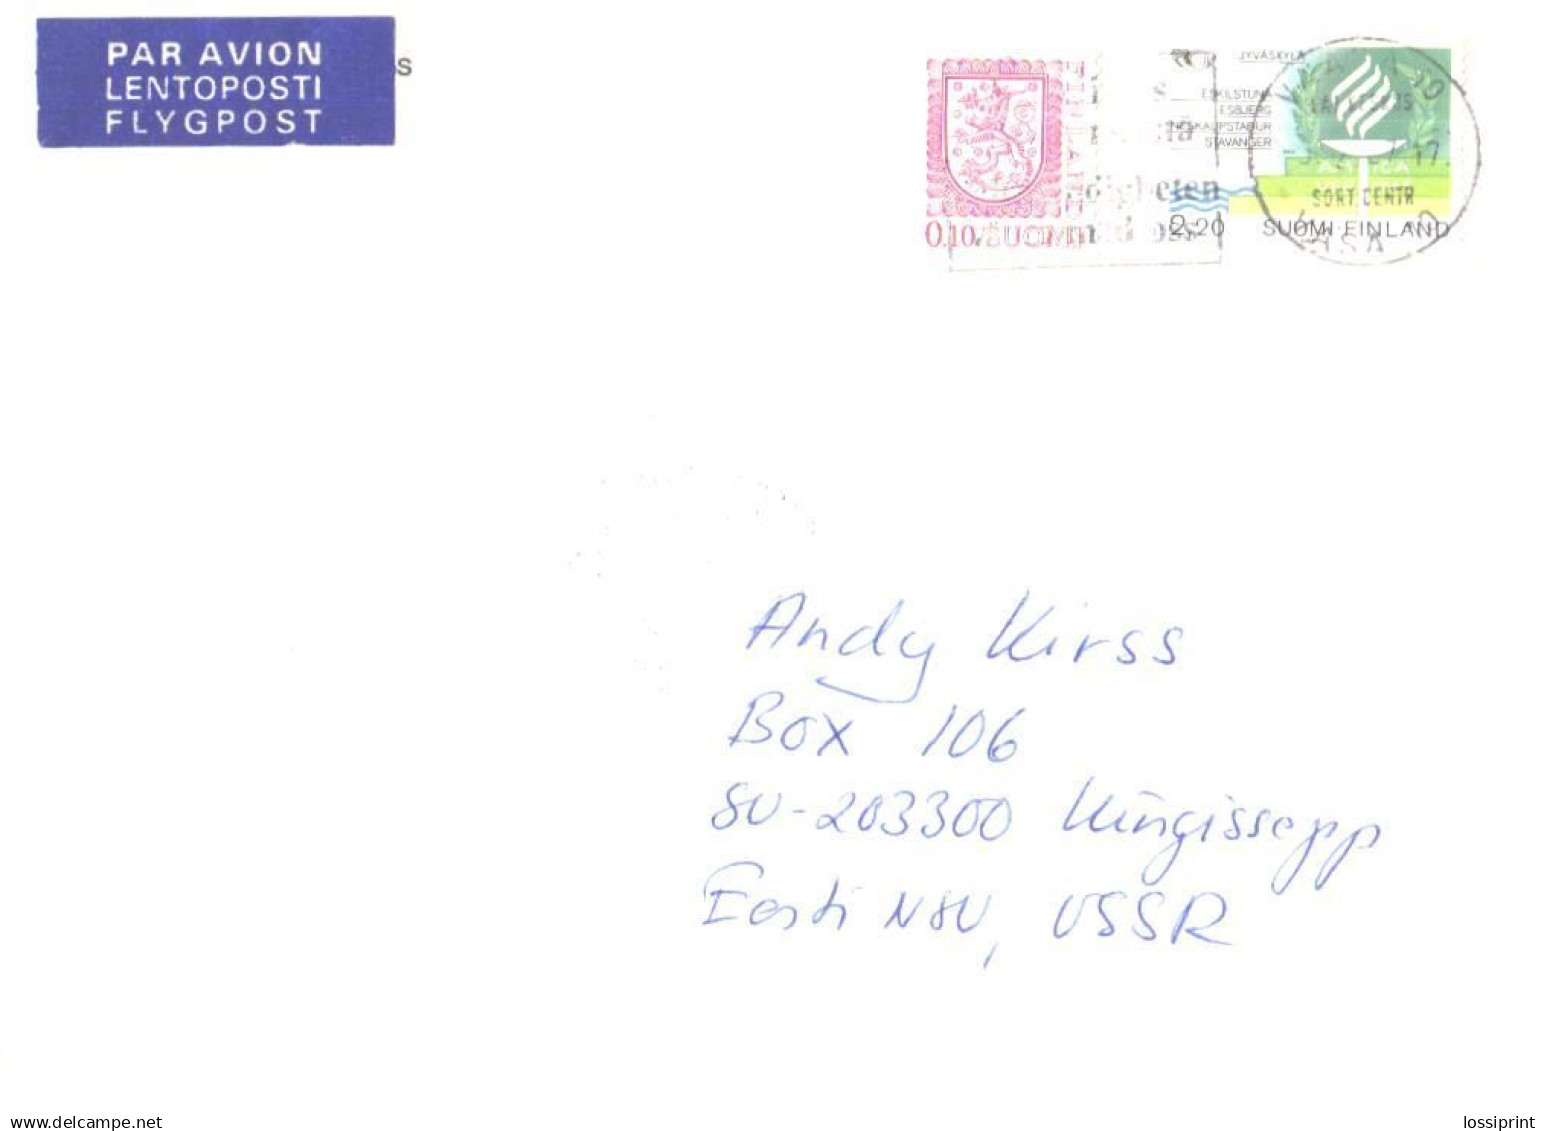 PAR AVION
LENTOPOSTI
FLYGPOST
S
0,10 SUOMI
FINLAND
JYVÄSKYLÄ
ESKILSTUNA
ESBJERG
NESKAUPSTADUR
STAVANGER
2,20 SUOMI FINLAND
SORT.CENTR
Andy Kirss
Box 106
SU-203300 Kingissepp
Eesti NSV, USSR
www.delcampe.net
lossiprint